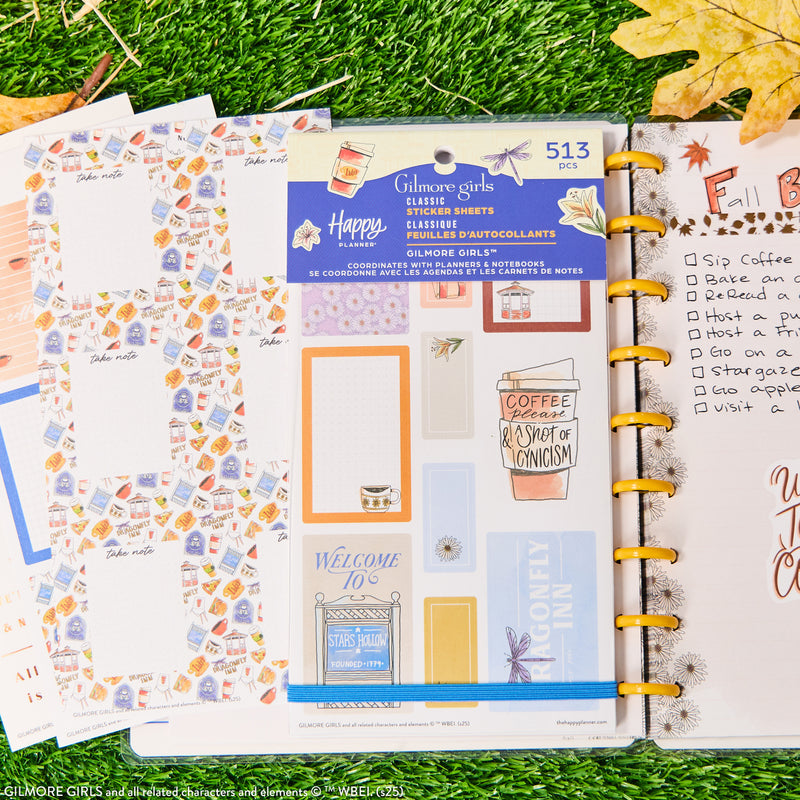 513
pcs
Gilmore girls
CLASSIC
STICKER SHEETS
CLASSIQUE
FEUILLES D'AUTOCOLLANTS
GILMORE GIRLS™
Happy
PLANNER®
COORDINATES WITH PLANNERS & NOTEBOOKS
SE COORDONNE AVEC LES AGENDAS ET LES CARNETS DE NOTES
take note
take note
take note
take note
take note
COFFEE
please
& a SHOT OF
CYNICISM
WELCOME
TO
STARS HOLLOW
FOUNDED·1779·
DRAGONFLY
INN
GILMORE GIRLS and all related characters and elements © ™ WBEI. (s25)
thehappyplanner.com
GILMORE GIRLS and all related characters and elements © ™ WBEI. (s25)
Fall B
Sip Coffee
Bake an
ReRead a
Host a pu
Host a Fri
Go on a
Stargaze
Go apple
visit a
& N
All
is
GILMORE GIRLS and all related characters and elements © ™ WBEI. (s25)